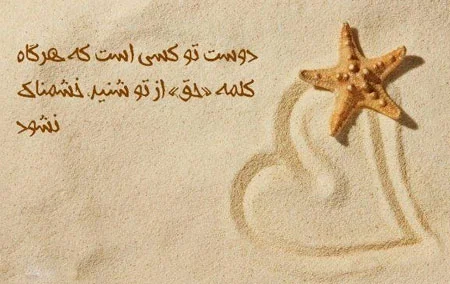 دوست تو کسی است که هرگاه
کلمه «حق» از تو شنید، خشمناک
نشود